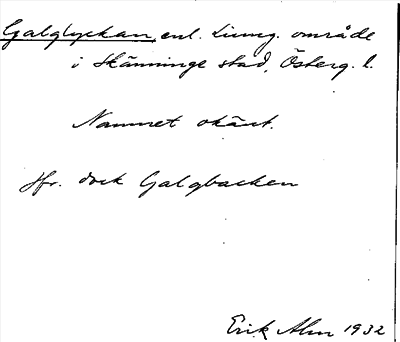 Galglyckan, enl. Ljung. område
i Skänninge stad, Österg. l.
Namnet okänt.
Jfr. dock Galgbacken
Erik Alm 1932